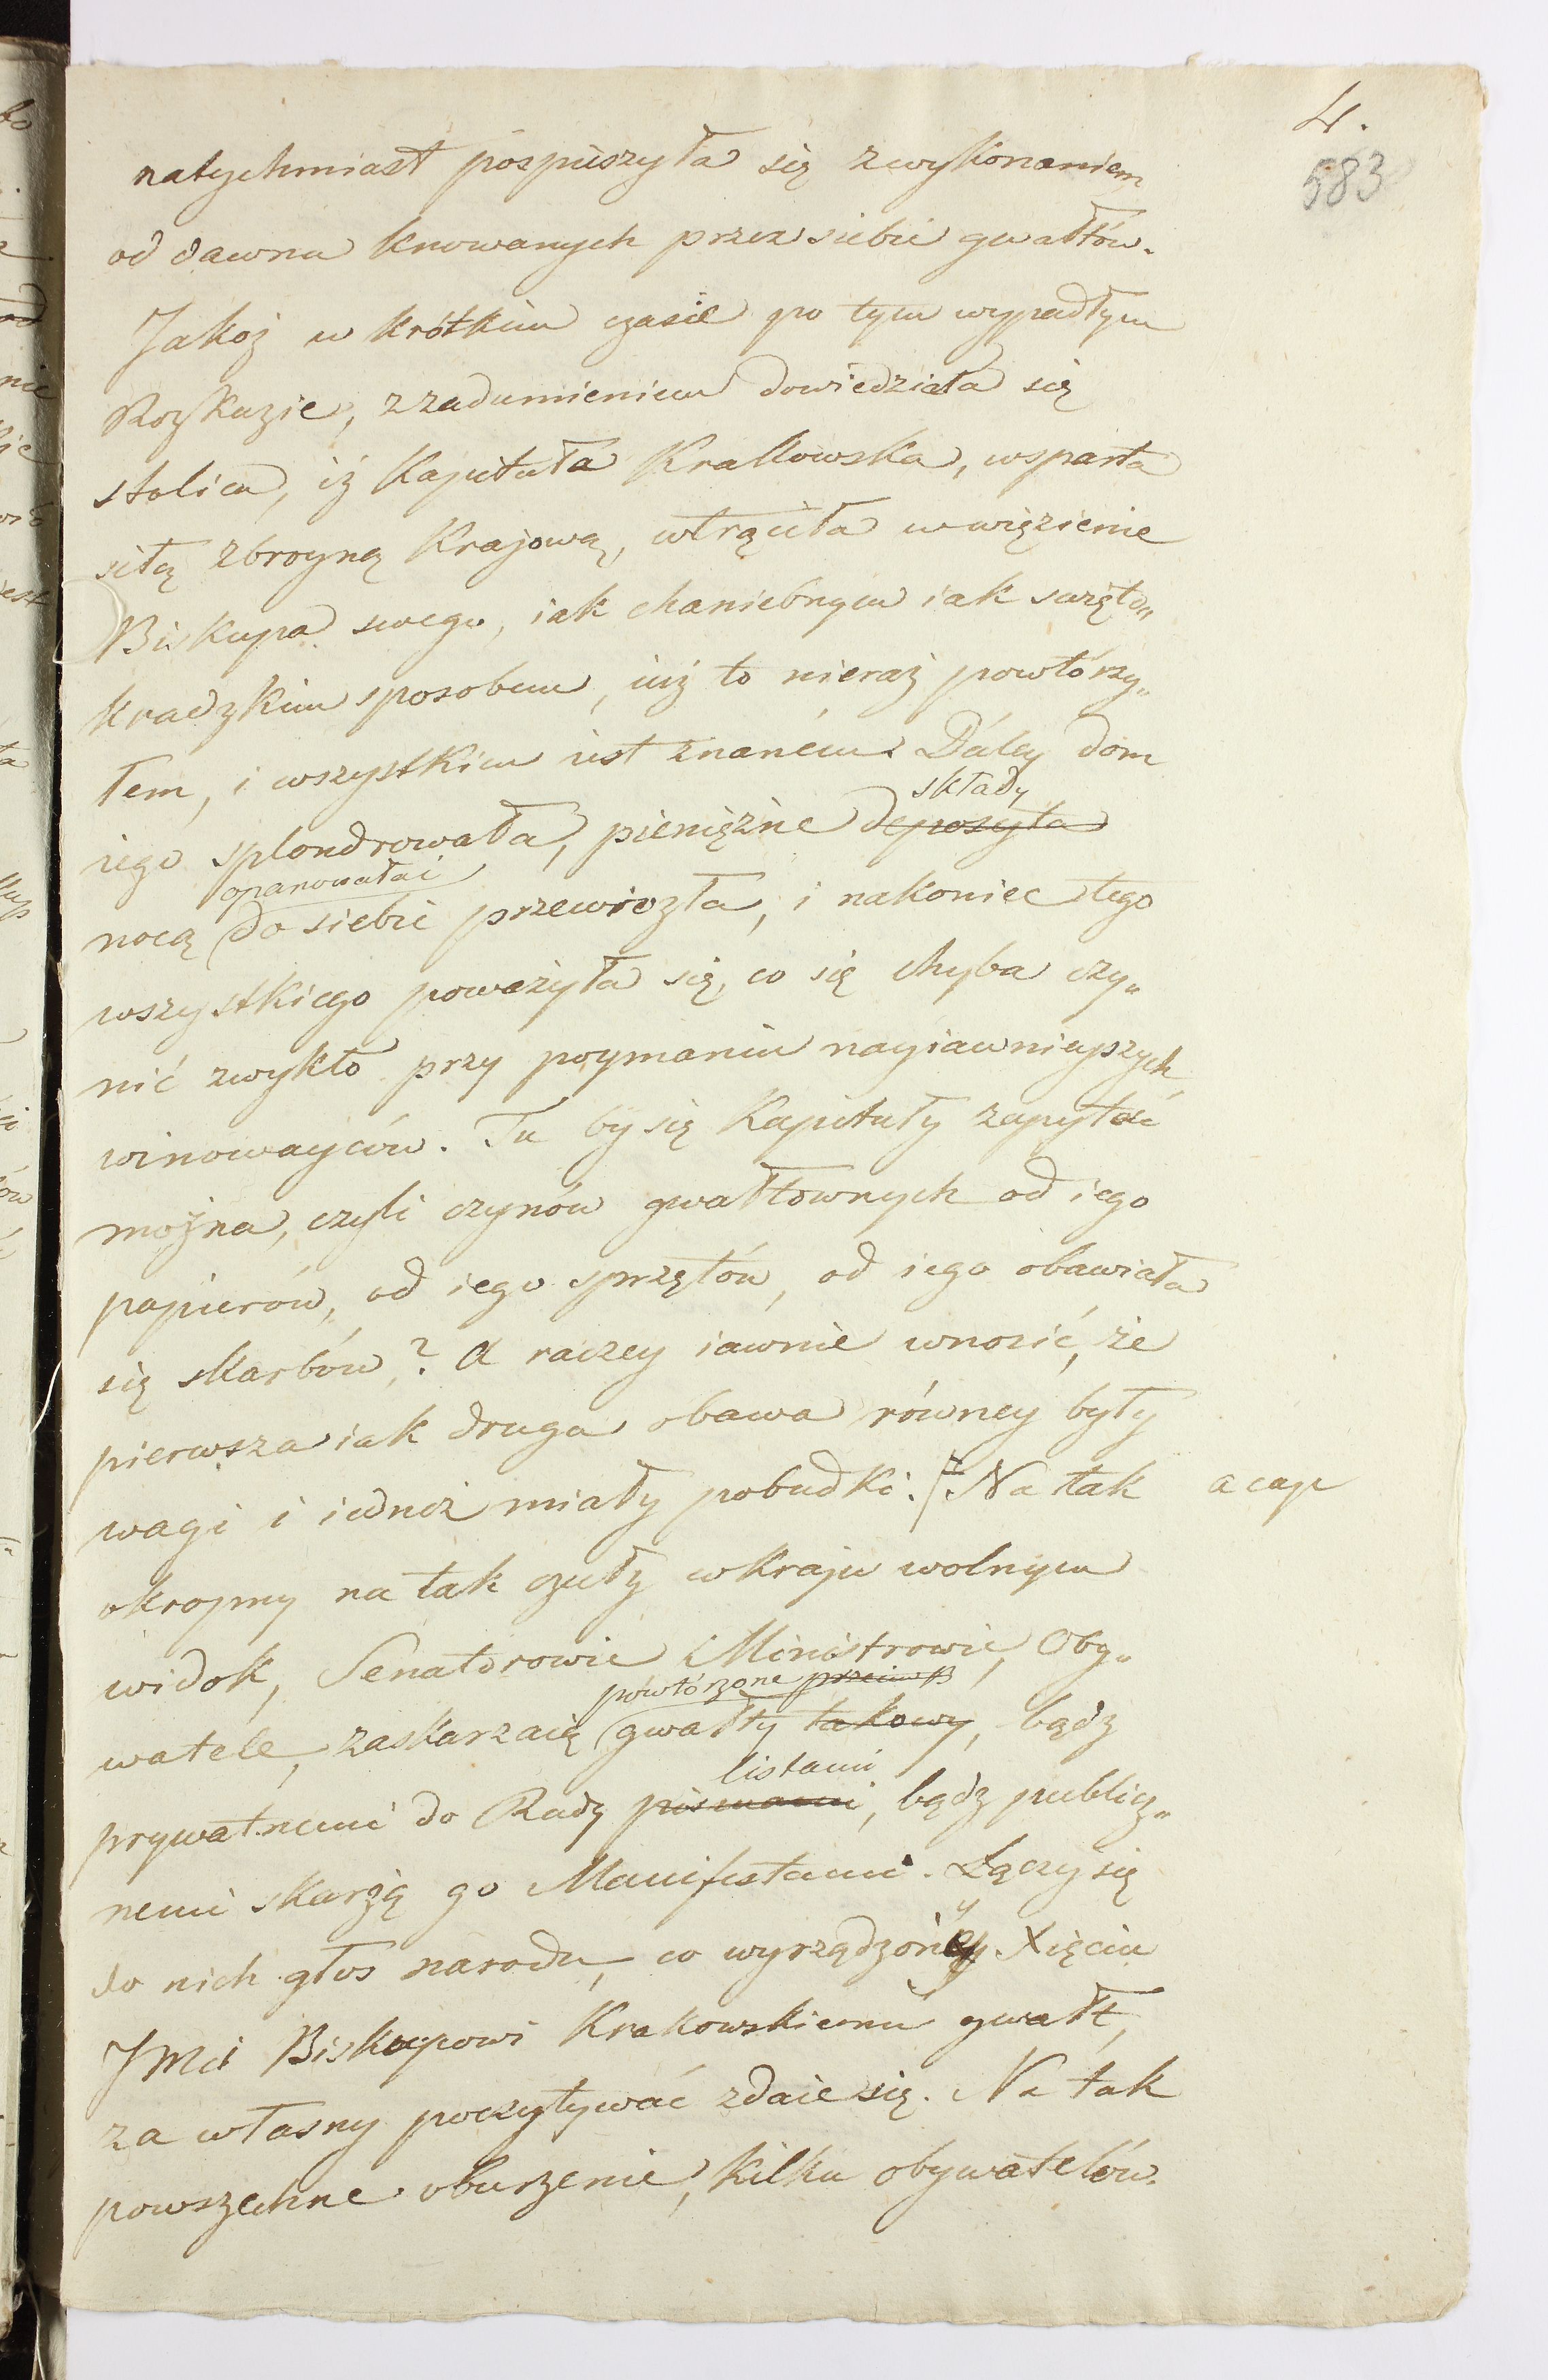 4.
583
natychmiast pospieszyła się z wykonaniem
od dawna knowanych przez siebie gwałtów.
Jakoż w krótkim czasie po tym wypadłym
Rozkazie, z zadumieniem dowiedziała się
stolica, iż Kapituła Krakowska, wsparta
siłą zbroyną Krajową, wtrąciła w więzienie
Biskupa swego, iak chaniebnym iak święto„
kradzkim sposobem, iuż to nieraz powtórzy„
łem, i wszystkim iest znaném. Dáley dom
składy
iego splondrowała, pieniężne deposyta
opanowała i
nocą do siebie przewiozła, i nakoniec tego
wszystkiego poważyła się, co się chyba czy„
nić zwykło przy poymaniu nayiawnieyszych
winowayców. Tu by się Kapituły zapytać
można, czyli czynów gwałtownych od iego
papierów, od iego sprzętów, od iego obawiała
się skarbów? A raczey iawnie wnosić, że
pierwsza iak druga obawa równey były
wagi i iednéż miały pobudki. Na tak a cap
okropny na tak czuły w kraju wolnym
widok, Senatorowie Ministrowie, Oby„
powtórzone przeciw
watele, zaskarzaią gwałty takowy, bądz
listami
prywatnemi do Rady pismami, bądz publicz„
nemi skarżą go Manifestami. Łączy się
do nich głos narodu, co wyrządzóny Xięciu
JMci Biskupowi Krakowskiemu gwałt,
za własny poczytywać zdaie się. Na tak
powszechne oburzenie, kilku obywatelów.